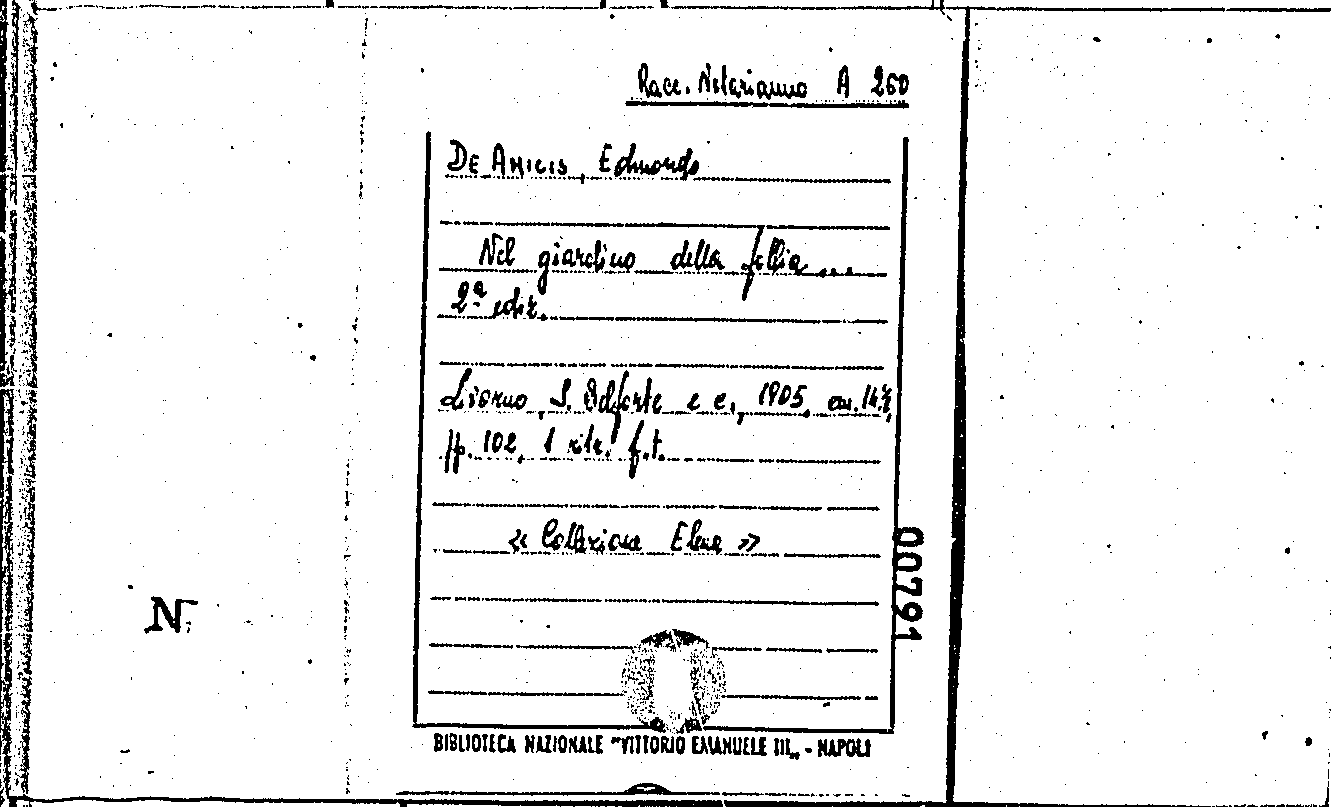 Racc. Notarianno A 260
DE AMICIS, Edmondo
Nel giardino della follia...
2ª ediz.
Livorno, S. Belforte e c., 1905, cm. 14½,
pp. 102, 1 ritr. f.t.
« Collezione Elena »
00791
N
BIBLIOTECA NAZIONALE "VITTORIO EMANUELE III„ - NAPOLI